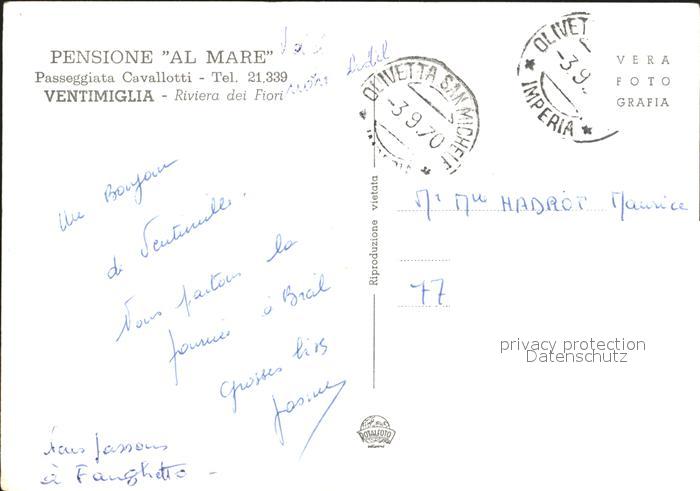 PENSIONE "AL MARE"
Passeggiata Cavallotti - Tel. 21,339
VENTIMIGLIA - Riviera dei Fiori
OLIVETTA SAN MICHELE
-3.9.70
OLIVET
-3.9.
* IMPERIA *
VERA
FOTO
GRAFIA
Un Bonjour
de Ventimille.
Nous partons la
journée à Breil
Grosses bises
Nous passons
à Fanghetto -
Riproduzione vietata
Mr Mme HADROT Maurice
77
privacy protection
Datenschutz